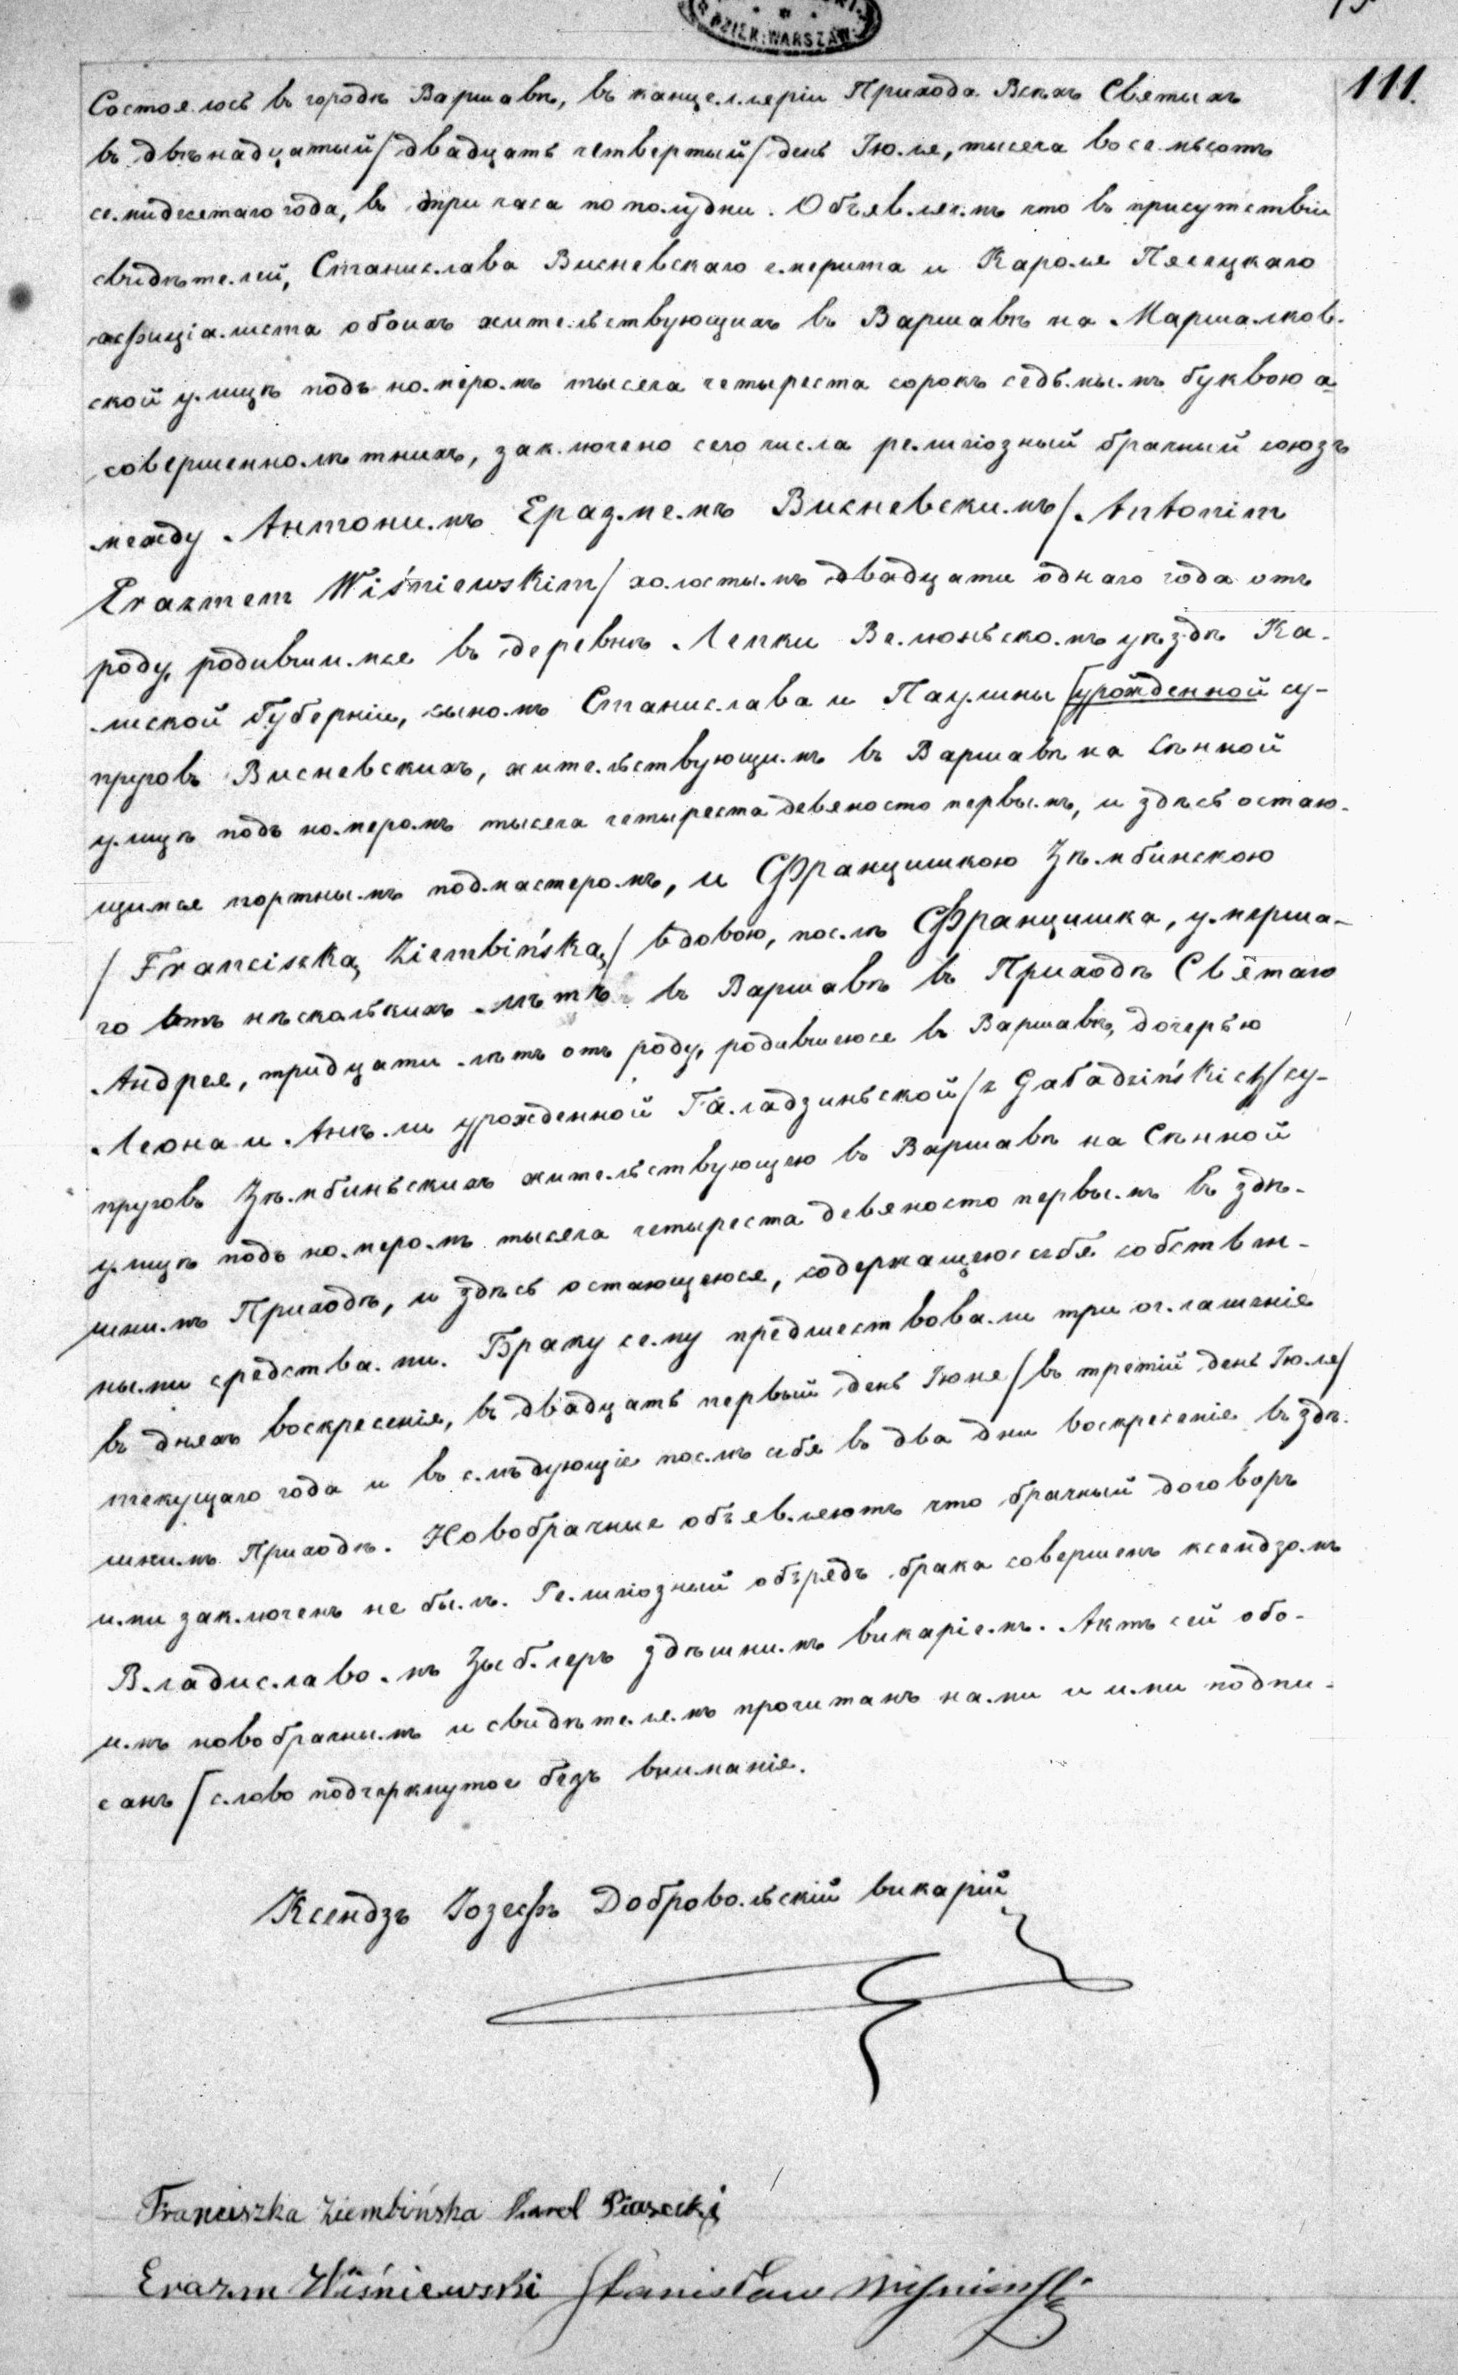 DZIEK. WARSZAW.
111.
Состоялось въ городѣ Варшавѣ, въ канцелляріи Прихода Всѣхъ Святыхъ
въ двѣнадцатый/двадцать четвертый/день Іюля, тысяча восемьсотъ
семидесятаго года, въ три часа по полудни. Объявляемъ что въ присутствіи
свидѣтелей, Станислава Висневскаго емерита и Кароля Пясецкаго
оффиціалиста обоихъ жительствующихъ въ Варшавѣ на Маршалков-
ской улицѣ подъ номеромъ тысяча четыреста сорокъ седьмымъ буквою а
совершеннолѣтнихъ, заключено сего числа религіозный брачный союзъ
между Антонимъ Еразмемъ Висневскимъ/Antonim
Erazmem Wiśniewskim/ холостымъ двадцати одного года отъ
роду, родившимся въ деревнѣ Лепки Велюньскомъ уѣздѣ Ка-
лиской Губерніи, сыномъ Станислава и Паулины /урожденной су-
пруговъ Висневскихъ, жительствующимъ въ Варшавѣ на Сѣнной
улицѣ подъ номеромъ тысяча четыреста девяносто первымъ, и здѣсь остаю-
щимся портнымъ подмастеромъ, и Францишкою Зѣмбинскою
/Franciszką Ziembińską/ вдовою, послѣ Францишка, умерша-
го отъ нѣсколькихъ лѣтъ въ Варшавѣ въ Приходѣ Святаго
Андрея, тридцати лѣтъ отъ роду, родившеюся въ Варшавѣ, дочерью
Леона и Анѣли урожденной Галадзиньской/z Gaładzińskich/су-
пруговъ Зѣмбиньскихъ жительствующею въ Варшавѣ на Сѣнной
улицѣ подъ номеромъ тысяча четыреста девяносто первымъ въ здѣ-
шнимъ Приходѣ, и здѣсь остающеюся, содержащеюсебя собствен-
ными средствами. Браку сему предшествовали три оглашенія
въ дняхъ воскресенія, въ двадцать первый день Іюня/въ третій день Іюля/
текущаго года и въ слѣдующіе послѣ себя въ два дни воскресенія въ здѣ-
шнимъ Приходѣ. Новобрачные объявляютъ что брачный договоръ
ими заключенъ не былъ. Религіозный обрядъ брака совершенъ ксендзомъ
Владиславомъ Зыблеръ здѣшнимъ викаріемъ. Актъ сей обо-
имъ новобрачнымъ и свидѣтелямъ прочитанъ нами и ими подпи-
санъ/слово подчеркнутое безъ вниманія.
Ксендзъ Іозефъ Добровольскій викарій
Franciszka Ziembińska Karol Piasecki
Erazm Wiśniewski Stanisław Wiśniewski